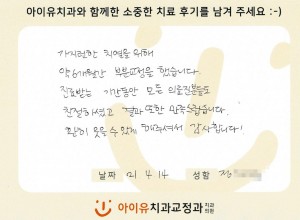 아이유치과와 함께한 소중한 치료 후기를 남겨 주세요 :-)
가지런한 치열을 위해
약 6개월간 부분교정을 했습니다.
진료받는 기간동안 모든 의료진분들도
친절하셨고 결과 또한 만족스럽습니다.
환히 웃을 수 있게 해주셔서 감사합니다!
날짜 21. 4. 14 성함 정
아이유치과교정과 치과의원